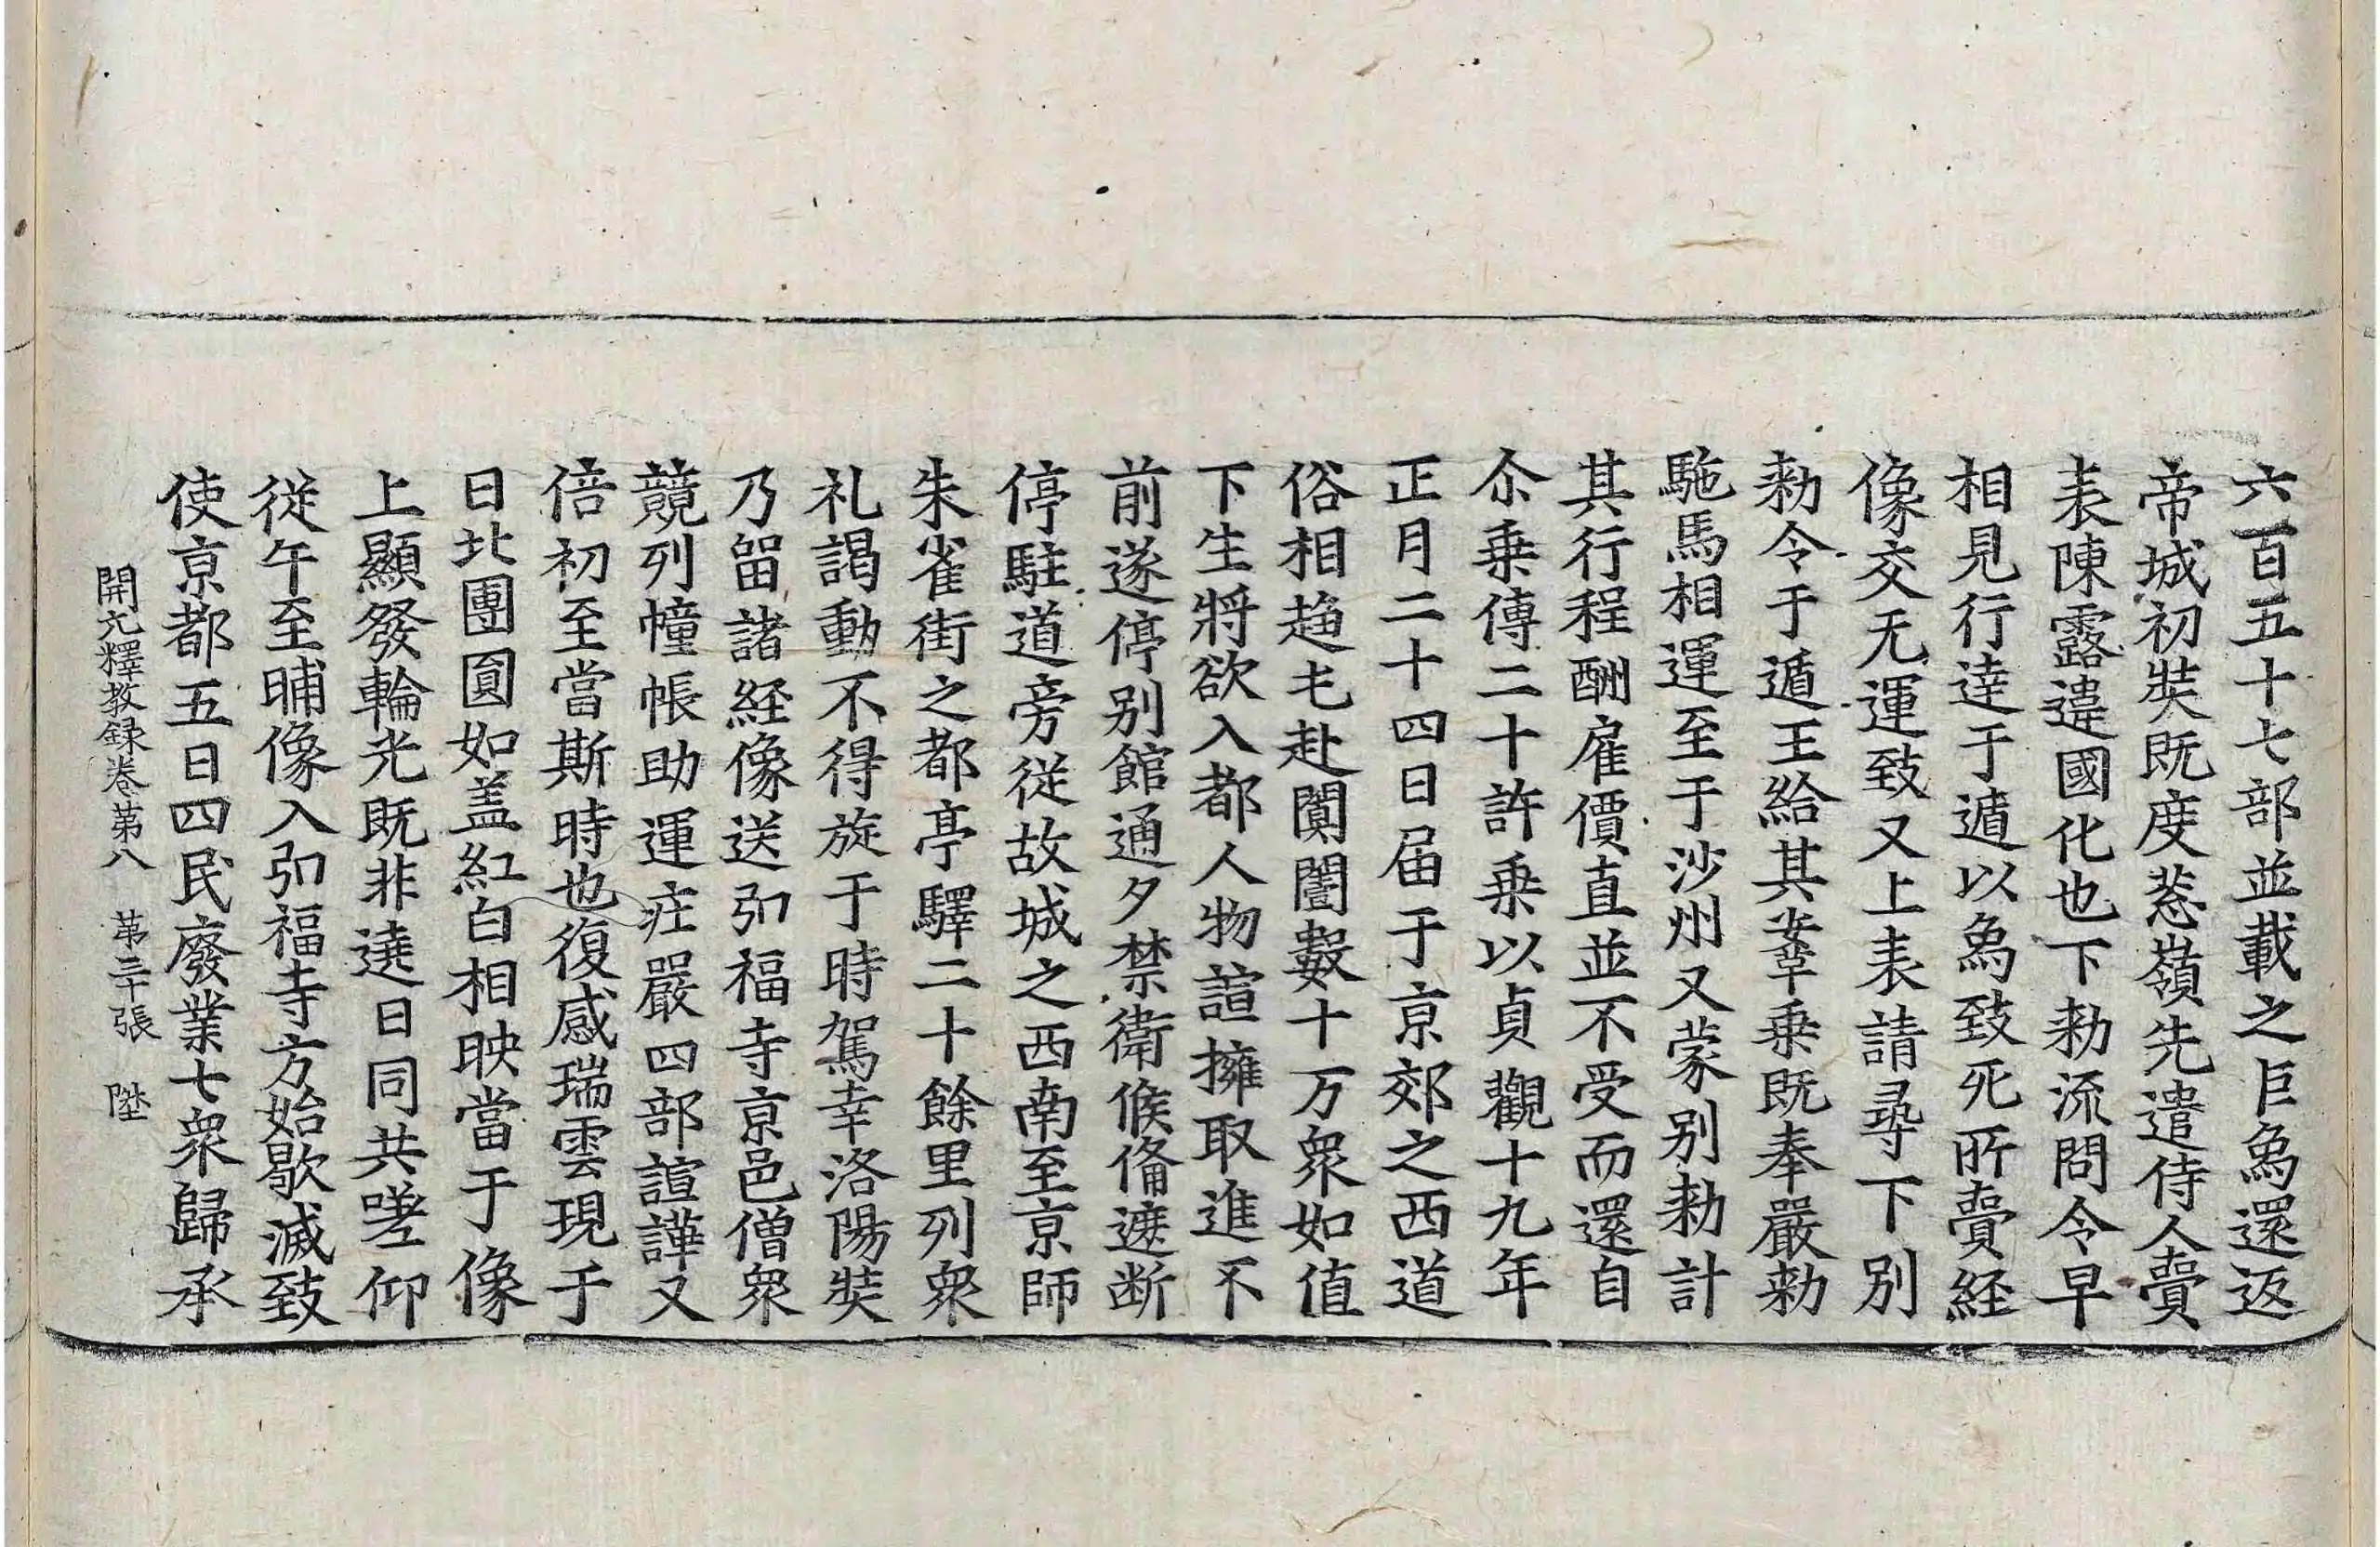 六百五十七部並載之巨烏還返
帝城初奘既度葱嶺先遣侍人賷
表陳露違國化也下勑流問令早
相見行達于遁以烏致死所賷経
像交无運致又上表請尋下別
勑令于遁王給其鞌乗既奉嚴勑
駞馬相運至于沙州又蒙別勑計
其行程酬雇價直並不受而還自
尒乗傳二十許乗以貞觀十九年
正月二十四日届于京郊之西道
俗相趍屯赴闐闍數十万衆如值
下生將欲入都人物諠擁取進不
前遂停別館通夕禁衛候俻遮断
停駐道旁從故城之西南至京師
朱雀街之都亭驛二十餘里列衆
礼謁動不得旋于時駕幸洛陽奘
乃留諸経像送弘福寺京邑僧衆
競列幢帳助運庄嚴四部諠譁又
倍初至當斯時也復感瑞雲現于
日北團圎如盖紅白相映當于像
上顯發輪光既非遶日同共嗟仰
從午至晡像入弘福寺方始歇滅致
使京都五日四民廢業七衆歸承
開元釋教録卷第八 第三十張 陞